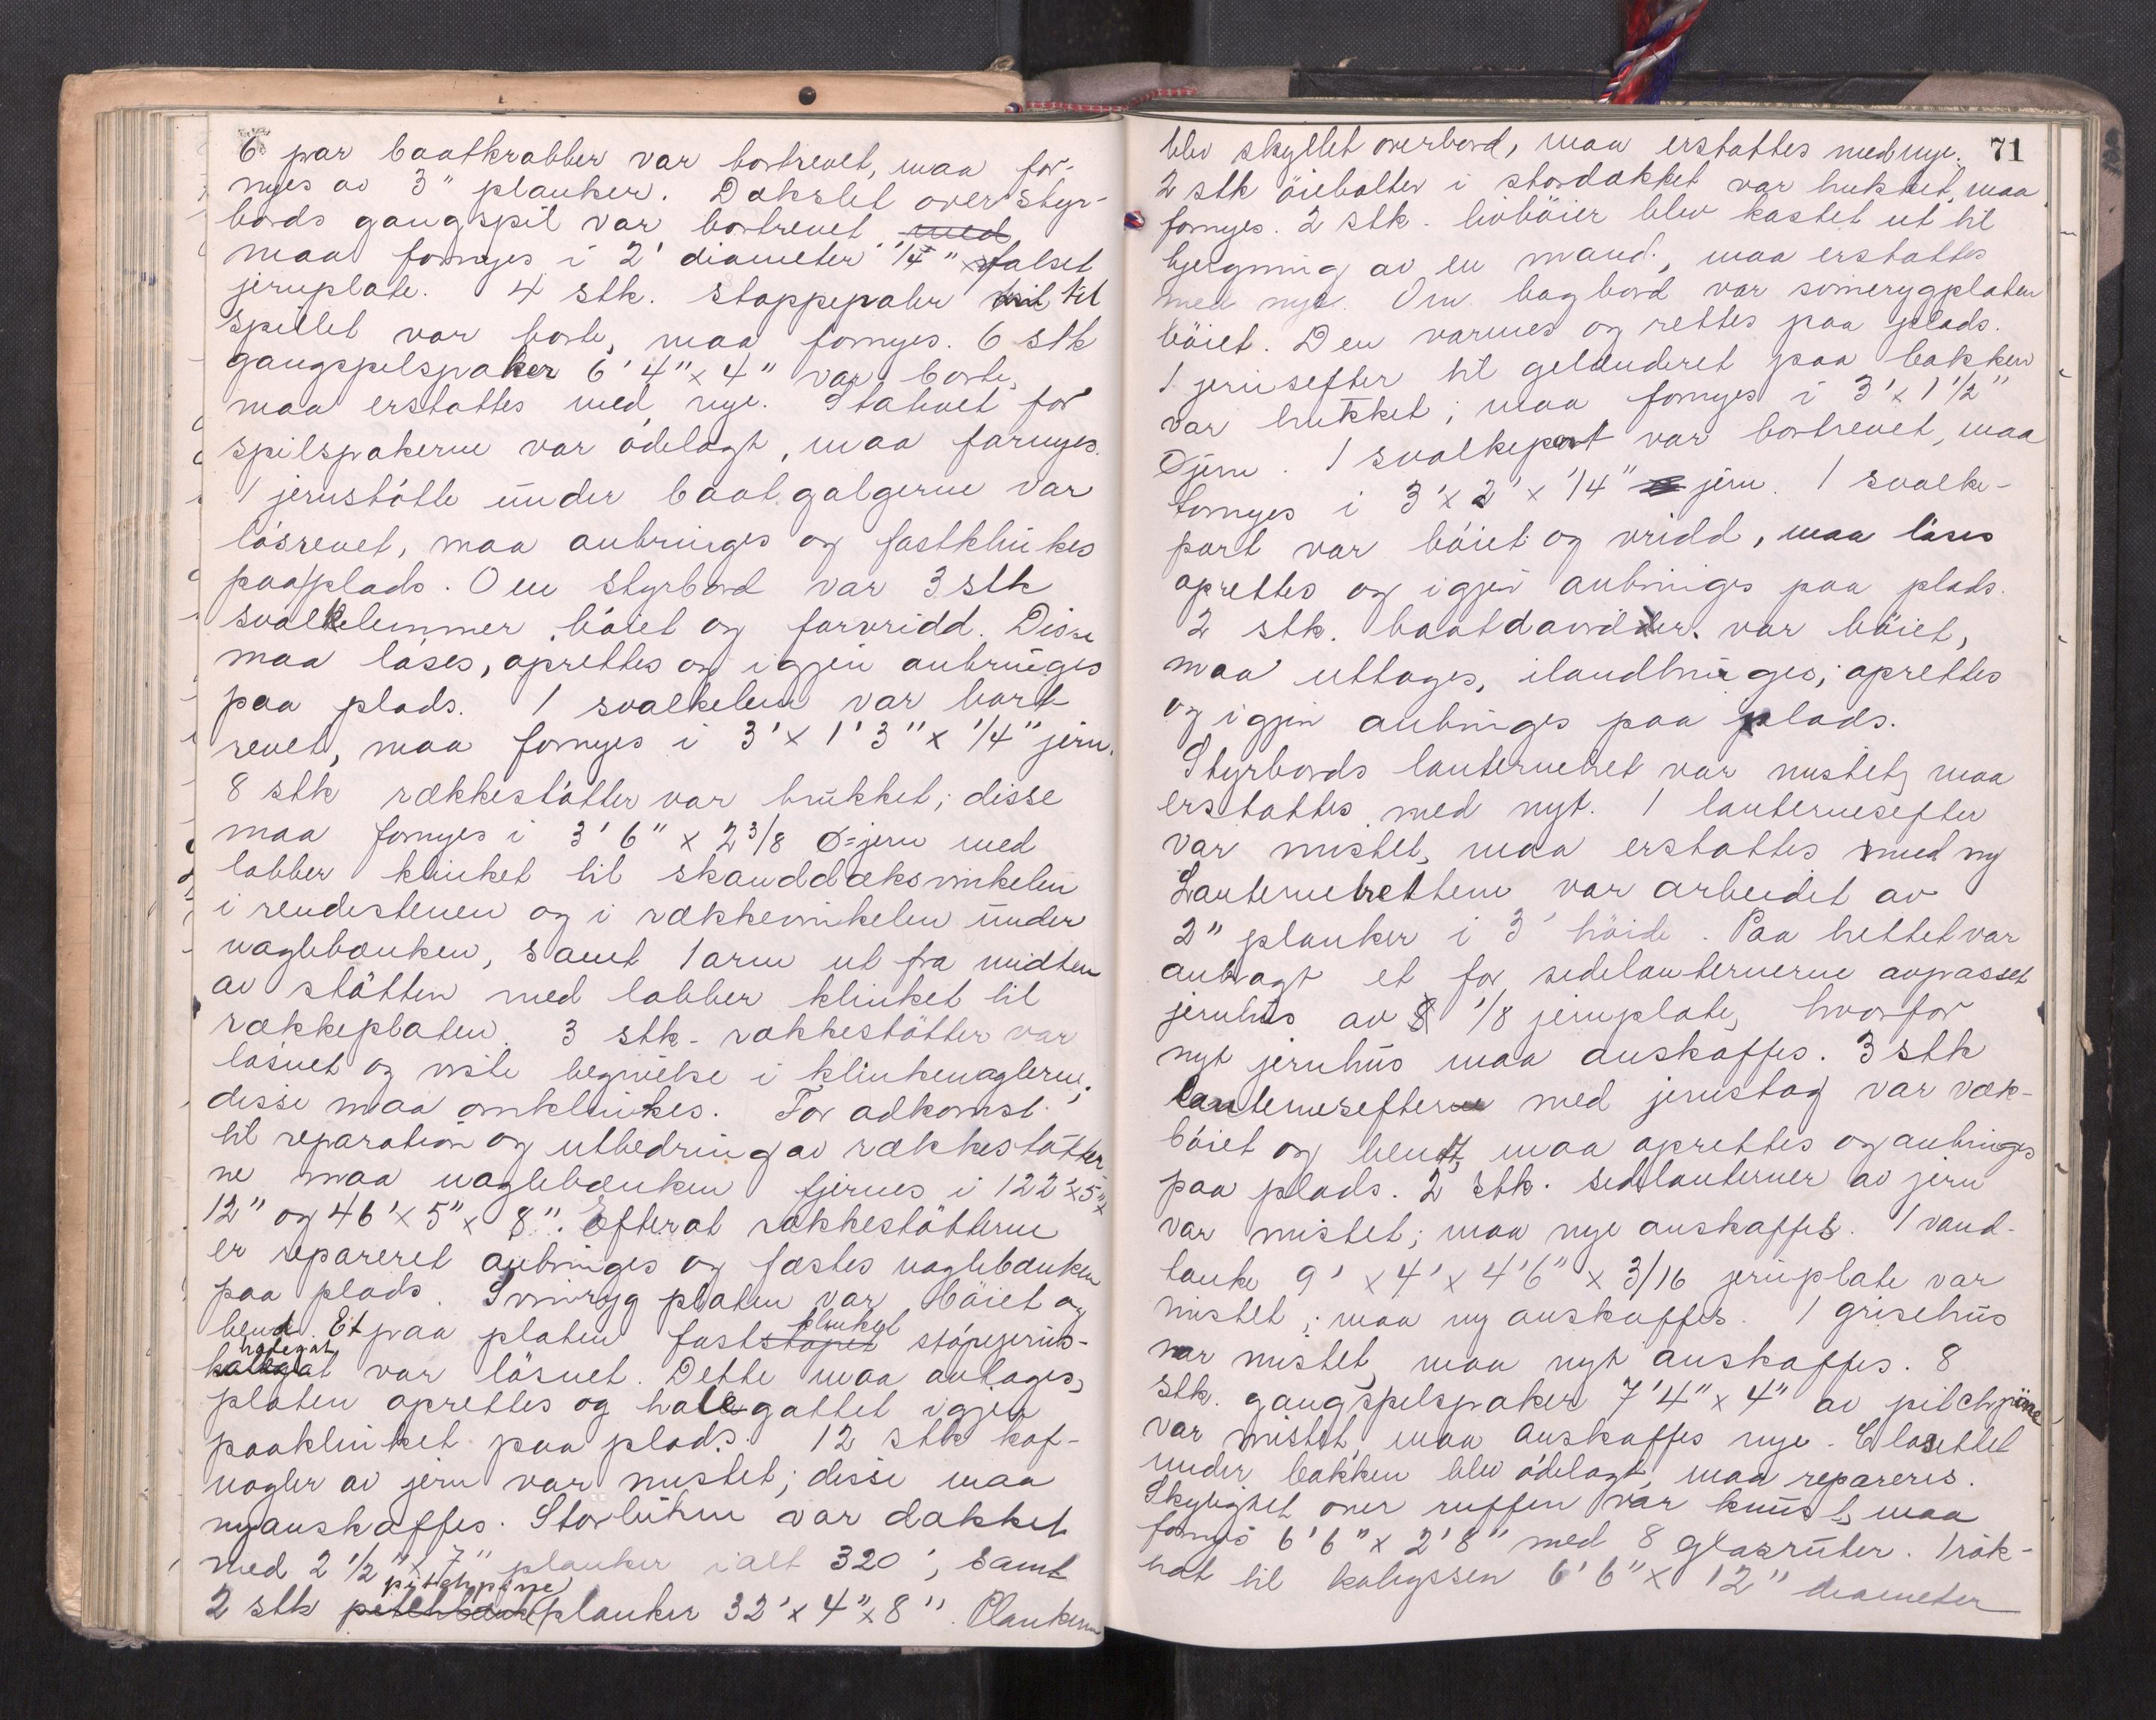 6 par baatkrabber var bortrevet, maa for-
nyes av 3" planker. Dækslet over styr-
bords gangspil var bortrevet med
maa fornyes i 2' diameter 1/4" falset
jernplate. 4 stk. stoppepaler til
spillet var borte, maa fornyes. 6 stk
gangspilspaker 6' 4" x 4" var borte,
maa erstattes med nye. Stativet for
spilspakerne var ödelagt, maa fornyes.
1 jernstötte under baatgalgerne var
lösrevet, maa anbringes og fastklinkes
paa plads. Om styrbord var 3 stk
svalkelemmer böiet og forvridd. Disse
maa löses, oprettes og igjen anbringes
paa plads. 1 svalkelem var bort-
revet, maa fornyes i 3' x 1' 3" x 1/4" jern.
8 stk rækkestötter var brukket; disse
maa fornyes i 3' 6" x 2 3/8 Ø-jern med
labber klinket til skanddæksvinkelen
i rendestenen og i rækkevinkelen under
naglebænken, samt 1 arm ut fra midten
av stötten med labber klinket til
rækkeplaten. 3 stk. rækkestötter var
lösnet og viste begivelse i klinkenaglerne;
disse maa omklinkes. For adkomst
til reparation og utbedring av rækkestötter-
ne maa naglebænken fjernes i 122' x 5" x
12" og 46' x 5" x 8". Efterat rækkestötterne
er reparert anbringes og fæstes naglebænken
paa plads. Svinryg platen var böiet og
bend. Et paa platen faststöpet klinket stöpejerns-
halegat var lösnet. Dette maa avtages,
platen oprettes og halegattet igjen
paaklinket paa plads. 12 stk kof-
nagler av jern var mistet; disse maa
nyanskaffes. Storluken var dækket
med 2 1/2" x 7" planker ialt 320', samt
2 stk pitchpine planker 32' x 4" x 8". Plankerne
71
blev skyllet overbord, maa erstattes med nye.
2 stk öiebolter i stordækket var brukket, maa
fornyes. 2 stk. livböier blev kastet ut til
bjergning av en mand, maa erstattes
med nye. Om bagbord var svinerygplaten
böiet. Den varmes og rettes paa plads.
1 jernsefter til gelænderet paa bakken
var brukket; maa fornyes i 3' x 1 1/2"
Ø jern. 1 svalkeport var bortrevet, maa
fornyes i 3' x 2' x 1/4" jern. 1 svalke-
port var böiet og vridd, maa löses
oprettes og igjen anbringes paa plads.
2 stk. baatdavider var böiet,
maa uttages, ilandbringes, oprettes
og igjen anbringes paa plads.
Styrbords lanternebret var mistet, maa
erstattes med nyt. 1 lanternesefter
var mistet, maa erstattes med ny
Lanternebrettene var arbeidet av
2" planker i 3' höide. Paa brettet var
anbragt et for sidelanternerne avpasset
jernhus av 1/8 jernplate, hvorfor
nyt jernhus maa anskaffes. 3 stk
lanternesefter med jernstag var væk-
böiet og bendt, maa oprettes og anbringes
paa plads. 2 stk. sidelanterner av jern
var mistet; maa nye anskaffes. 1 vand-
tanke 9' x 4' x 4'6" x 3/16 jernplate var
mistet; maa ny anskaffes. 1 grisehus
var mistet, maa nyt anskaffes. 8
stk. gangspelspaker 7' 4" x 4" av pitchpine
var mistet, maa anskaffes nye. Closettet
under bakken blev ödelagt, maa repareres.
Skylightet over ruffen var knust, maa
fornyes 6' 6" x 2' 8" med 8 glasruter. 1 rök-
hat til kabyssen 6' 6" x 12" diameter